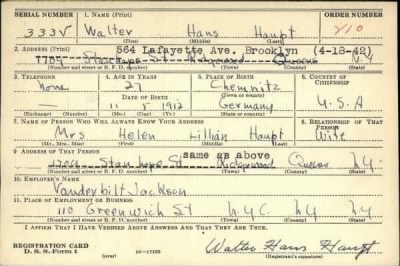 SERIAL NUMBER 1. NAME (Print) ORDER NUMBER
333V Walter Hans Haupt 410
(First) (Middle) (Last)
564 Lafayette Ave. Brooklyn (4-18-42)
2. ADDRESS (Print)
Stanhope St Ridgewood Queens N.Y
(Number and street or R. F. D. number) (Town) (County) (State)
3. TELEPHONE 4. AGE IN YEARS 5. PLACE OF BIRTH 6. COUNTRY OF CITIZENSHIP
none 27 Chemnitz
DATE OF BIRTH (Town or county)
11 5 1912 Germany U.S.A
(Exchange) (Number) (Mo.) (Day) (Yr.) (State or country)
7. NAME OF PERSON WHO WILL ALWAYS KNOW YOUR ADDRESS 8. RELATIONSHIP OF THAT PERSON
Mrs Helen Lillian Haupt Wife
(Mr., Mrs., Miss) (First) (Middle) (Last)
9. ADDRESS OF THAT PERSON
same as above
Stanhope St Ridgewood Queens N.Y
(Number and street or R. F. D. number) (Town) (County) (State)
10. EMPLOYER'S NAME
Vanderbilt Jackson
11. PLACE OF EMPLOYMENT OR BUSINESS
110 Greenwich St N.Y.C. N.Y
(Number and street or R. F. D. number) (Town) (County) (State)
I AFFIRM THAT I HAVE VERIFIED ABOVE ANSWERS AND THAT THEY ARE TRUE.
REGISTRATION CARD
D. S. S. Form 1 (over) Walter Hans Haupt
(Registrant's signature)